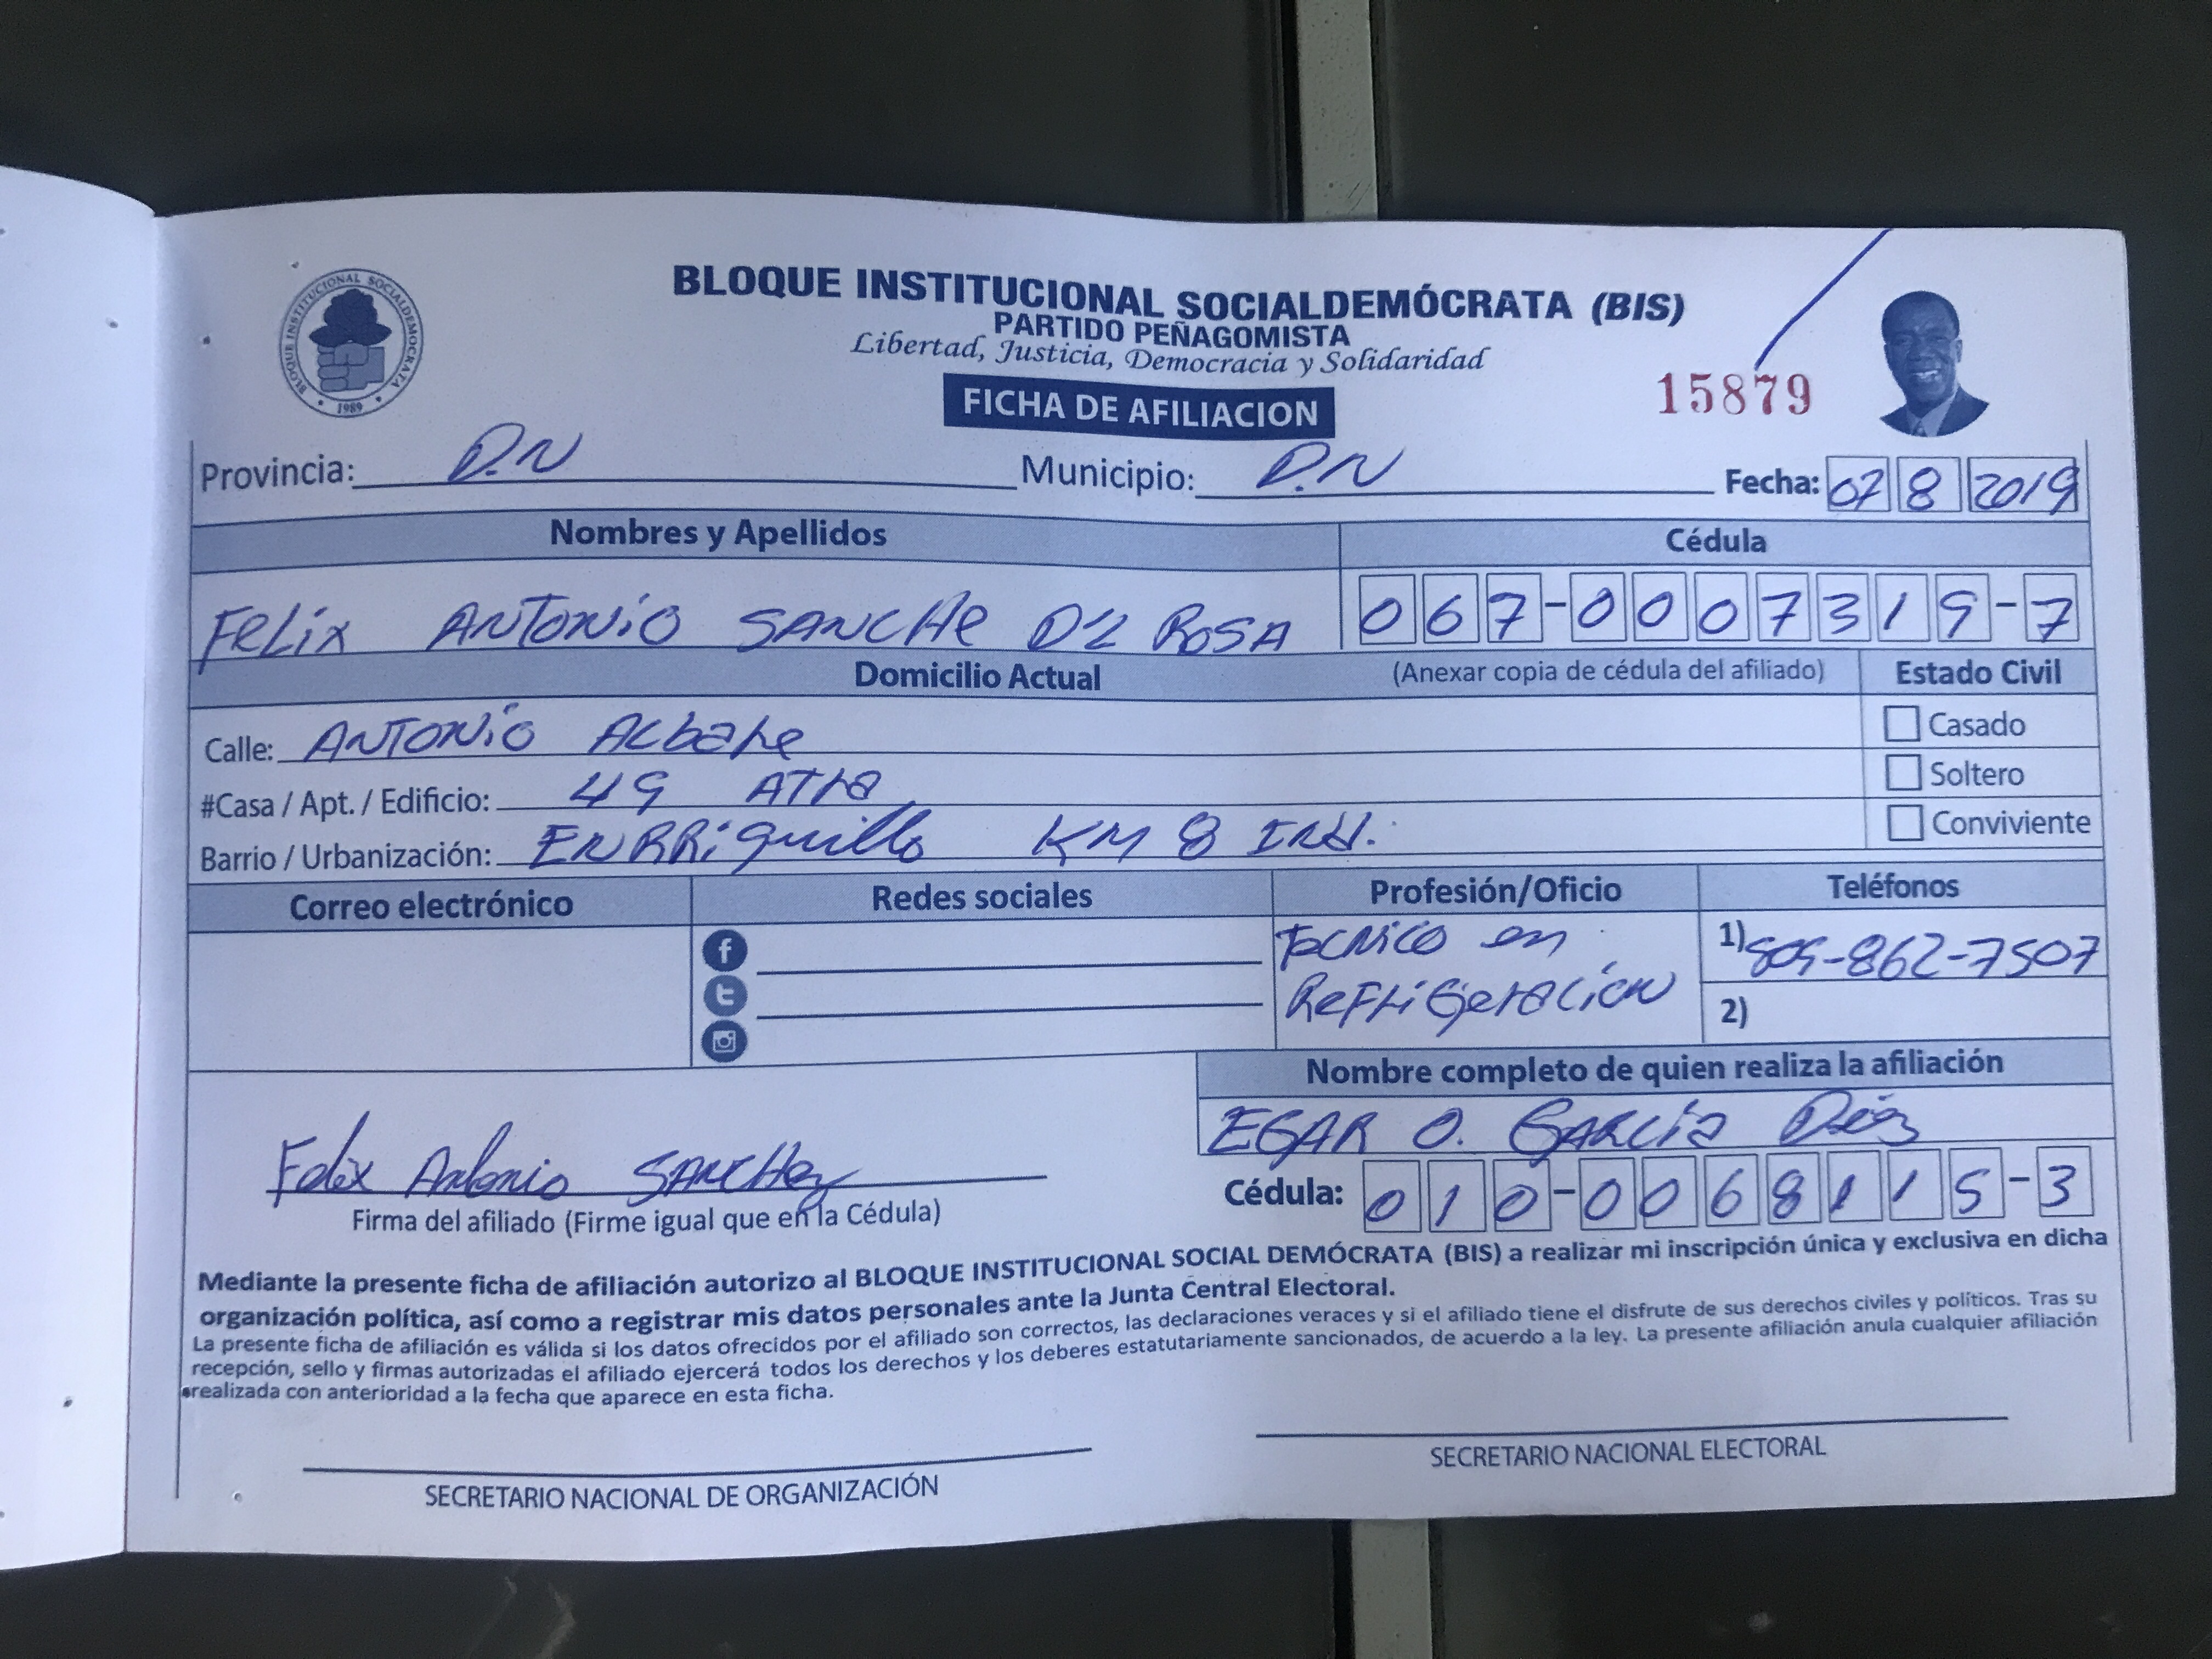 BLOQUE INSTITUCIONAL SOCIALDEMOCRATA
1989
BLOQUE INSTITUCIONAL SOCIALDEMÓCRATA (BIS)
PARTIDO PEÑAGOMISTA
Libertad, Justicia, Democracia y Solidaridad
FICHA DE AFILIACION
15879
Provincia: D.N Municipio: D.N Fecha: 07 8 2019
Nombres y Apellidos Cédula
FELix ANTONiO SANCHe D'L ROSA 067-0007319-7
Domicilio Actual (Anexar copia de cédula del afiliado) Estado Civil
Calle: ANTONiO Casado
#Casa / Apt. / Edificio: 49 ATRA Soltero
Barrio / Urbanización: ENRRiquillo KM 8 Conviviente
Correo electrónico Redes sociales Profesión/Oficio Teléfonos
Tecnico en 1) 809-862-7507
RefrigeraciON 2)
Nombre completo de quien realiza la afiliación
EGAR O. GARCia
Felix Antonio SANCHez
Firma del afiliado (Firme igual que en la Cédula) Cédula: 010-0068115-3
Mediante la presente ficha de afiliación autorizo al BLOQUE INSTITUCIONAL SOCIAL DEMÓCRATA (BIS) a realizar mi inscripción única y exclusiva en dicha
organización política, así como a registrar mis datos personales ante la Junta Central Electoral.
La presente ficha de afiliación es válida si los datos ofrecidos por el afiliado son correctos, las declaraciones veraces y si el afiliado tiene el disfrute de sus derechos civiles y políticos. Tras su
recepción, sello y firmas autorizadas el afiliado ejercerá todos los derechos y los deberes estatutariamente sancionados, de acuerdo a la ley. La presente afiliación anula cualquier afiliación
realizada con anterioridad a la fecha que aparece en esta ficha.
SECRETARIO NACIONAL DE ORGANIZACIÓN SECRETARIO NACIONAL ELECTORAL